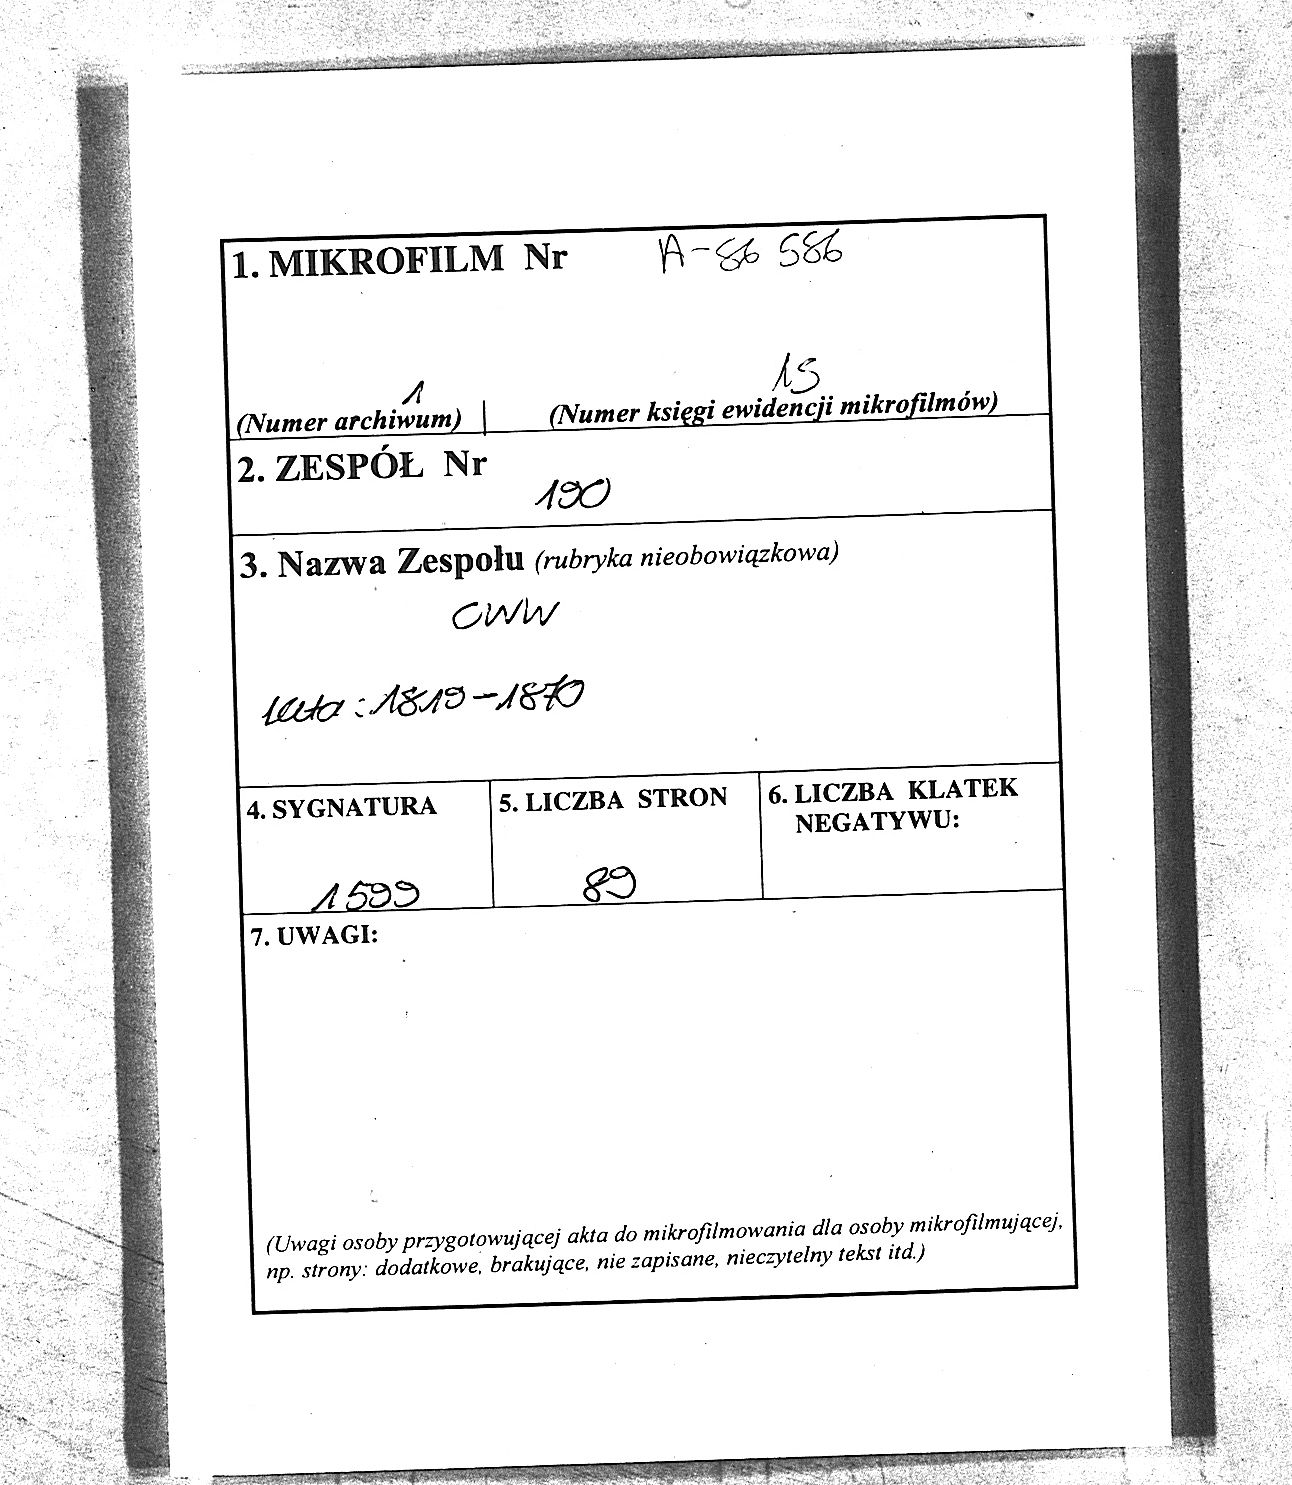 1. MIKROFILM Nr A-86 586
1 15
(Numer archiwum) | (Numer księgi ewidencji mikrofilmów)
2. ZESPÓŁ Nr
190
3. Nazwa Zespołu (rubryka nieobowiązkowa)
CWW
lata: 1819-1870
4. SYGNATURA 5. LICZBA STRON 6. LICZBA KLATEK
NEGATYWU:
1599 89
7. UWAGI:
(Uwagi osoby przygotowującej akta do mikrofilmowania dla osoby mikrofilmującej,
np. strony: dodatkowe, brakujące, nie zapisane, nieczytelny tekst itd.)